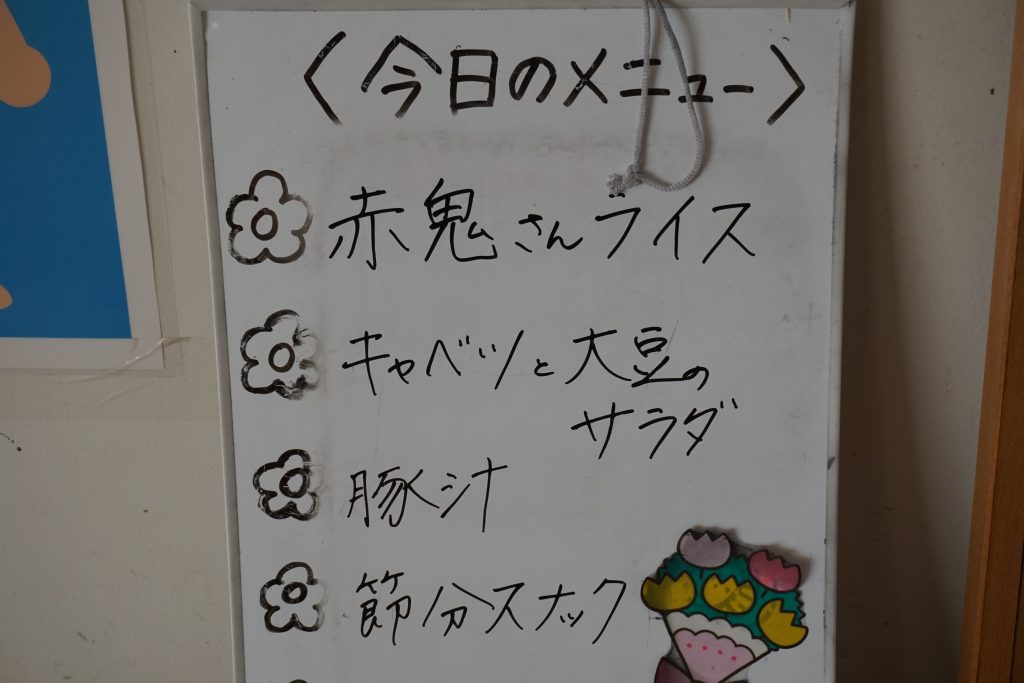 〈今日のメニュー〉
赤鬼さんライス
キャベツと大豆の
サラダ
豚汁
節分スナック